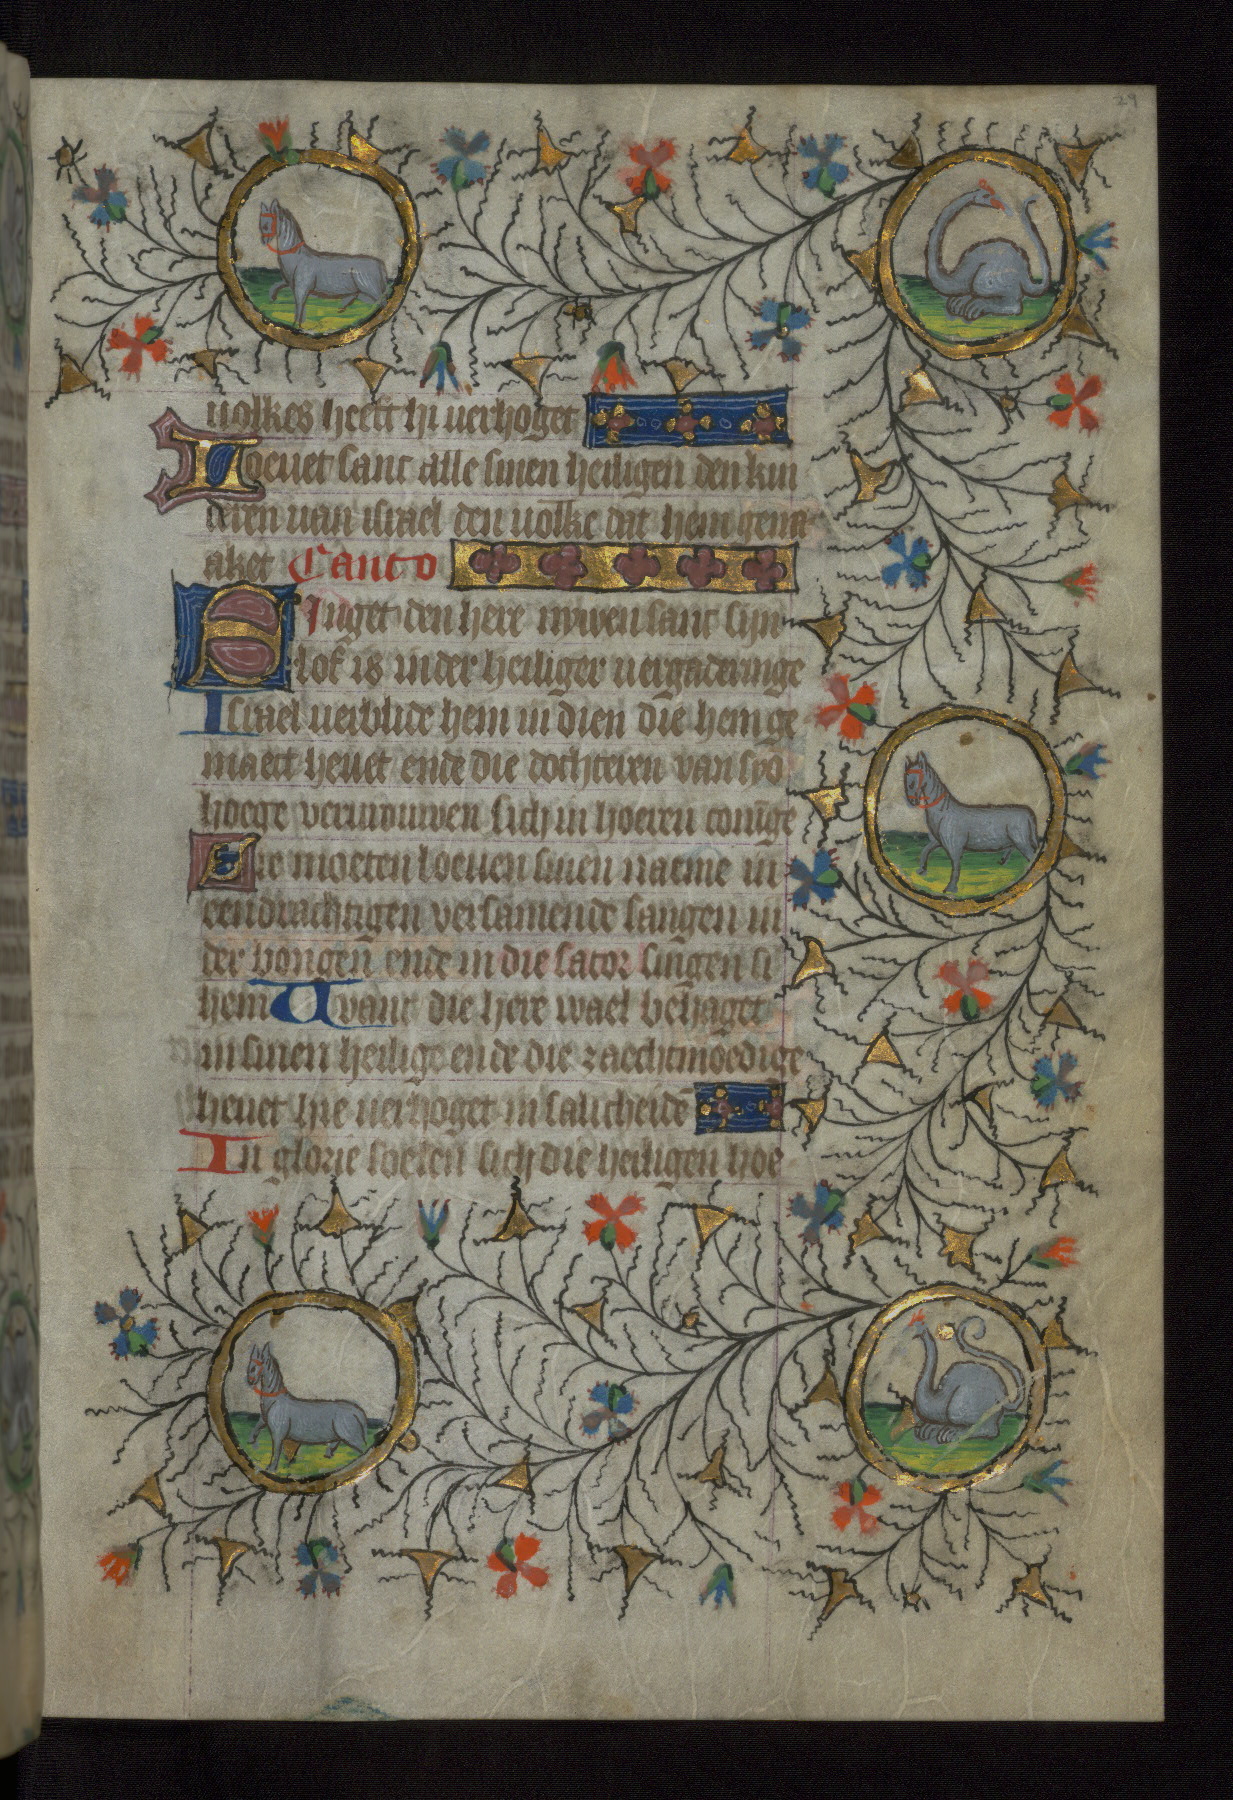 29
uolkes heeft hi uerhoget
Loeuet sanc alle sinen heiligen den kin
deren uan israel den uolke dat hem gena
aket Canto
Singet den here nywen sanc sijn
lof is in der heiliger uergaderinge
Israel uerblide hem in dien die hem ge
maect heuet ende die dochteren van syo
hoege verurouwen sich in hoeren coninge
Sie moeten loeuen sinen naeme in
eendrachtigen versamende sangen in
der bongen ende in die sator singen si
hem Want die here wael behaget
in sinen heilige ende die zaechtmoedige
heuet hie uerhoget in salicheide
In glorie soelen sich die heiligen hoe